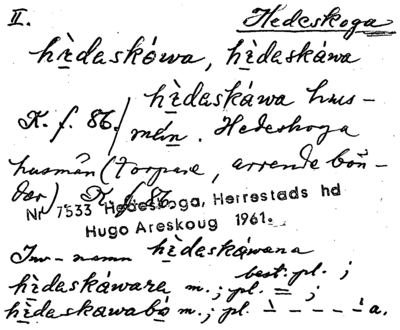 II. Hedeskoga
hèdaskówa, hèdaskáwa
K. f. 86. / hèdaskáwa hus-
män. Hedeskoga
husmän (torpare, arrendebön-
der) K. f. 86.
Nr 7533 Hedeskoga, Herrestads hd
Hugo Areskoug 1961.
Inv-namn hèdaskáwana
best. pl. ;
hèdaskáwara m.; pl. = ;
hèdaskawabó m.; pl. -̀ - - - -́ a.